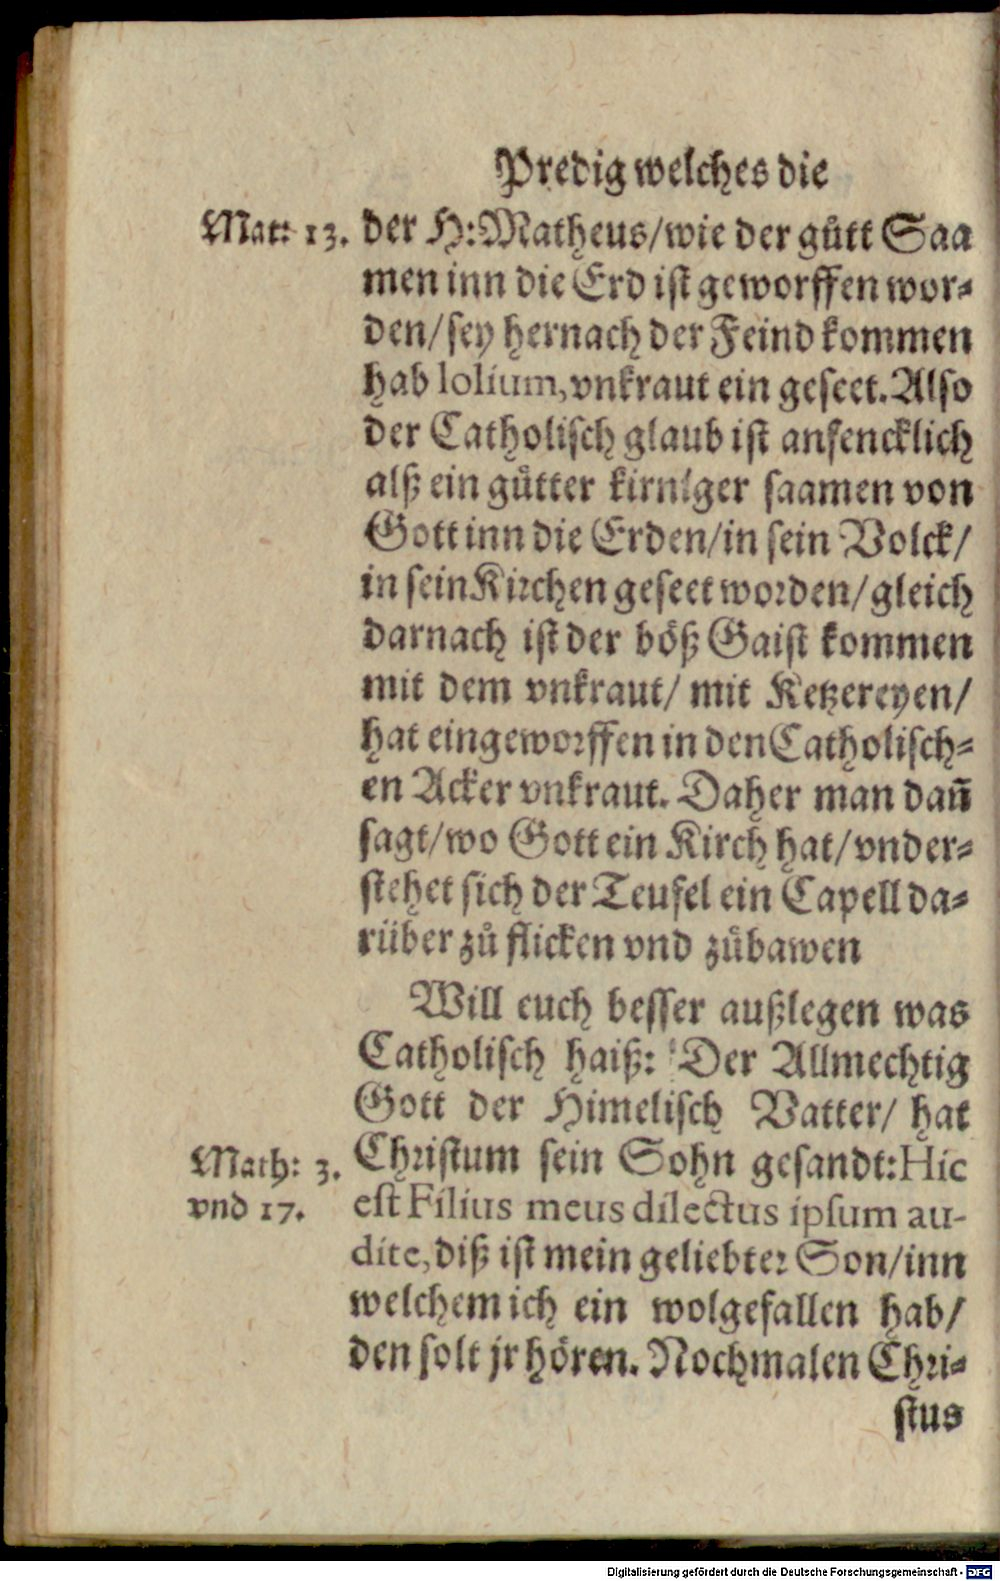 Predig welches die
Mat: 13. der H: Matheus/wie der gůtt Saa
men inn die Erd ist geworffen wor⸗
den/sey hernach der Feind kommen
hab lolium, vnkraut ein geseet. Also
der Catholisch glaub ist anfencklich
alß ein gůtter kirniger saamen von
Gott inn die Erden/in sein Volck/
in sein Kirchen geseet worden/gleich
darnach ist der böß Gaist kommen
mit dem vnkraut/ mit Ketzereyen/
hat eingeworffen in den Catholisch⸗
en Acker vnkraut. Daher man dañ
sagt/wo Gott ein Kirch hat/vnder⸗
stehet sich der Teufel ein Capell da⸗
rüber zů flicken vnd zůbawen
Will euch besser außlegen was
Catholisch haiß: Der Allmechtig
Gott der Himelisch Vatter/ hat
Math: 3. Christum sein Sohn gesandt: Hic
vnd 17. est Filius meus dilectus ipsum au-
dite, diß ist mein geliebter Son/inn
welchem ich ein wolgefallen hab/
den solt jr hören. Nochmalen Chri⸗
stus
Digitalisierung gefördert durch die Deutsche Forschungsgemeinschaft - DFG